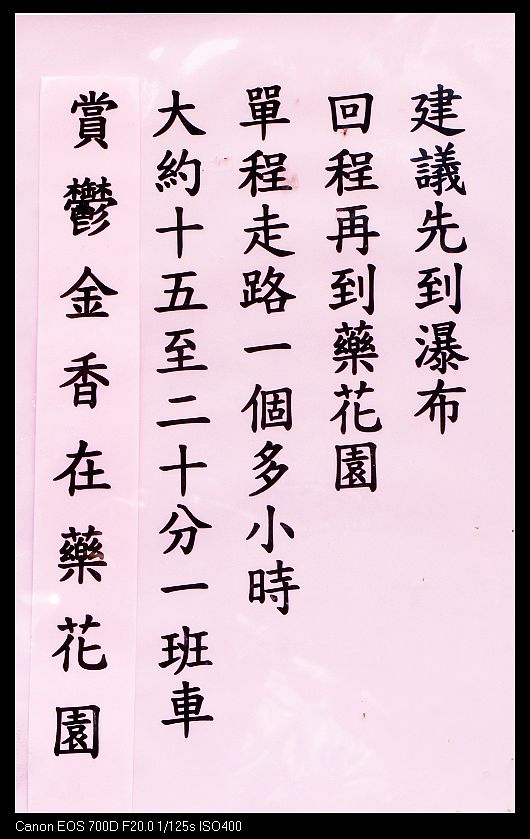 建議先到瀑布
回程再到藥花園
單程走路一個多小時
大約十五至二十分一班車
賞鬱金香在藥花園
Canon EOS 700D F20.0 1/125s ISO400